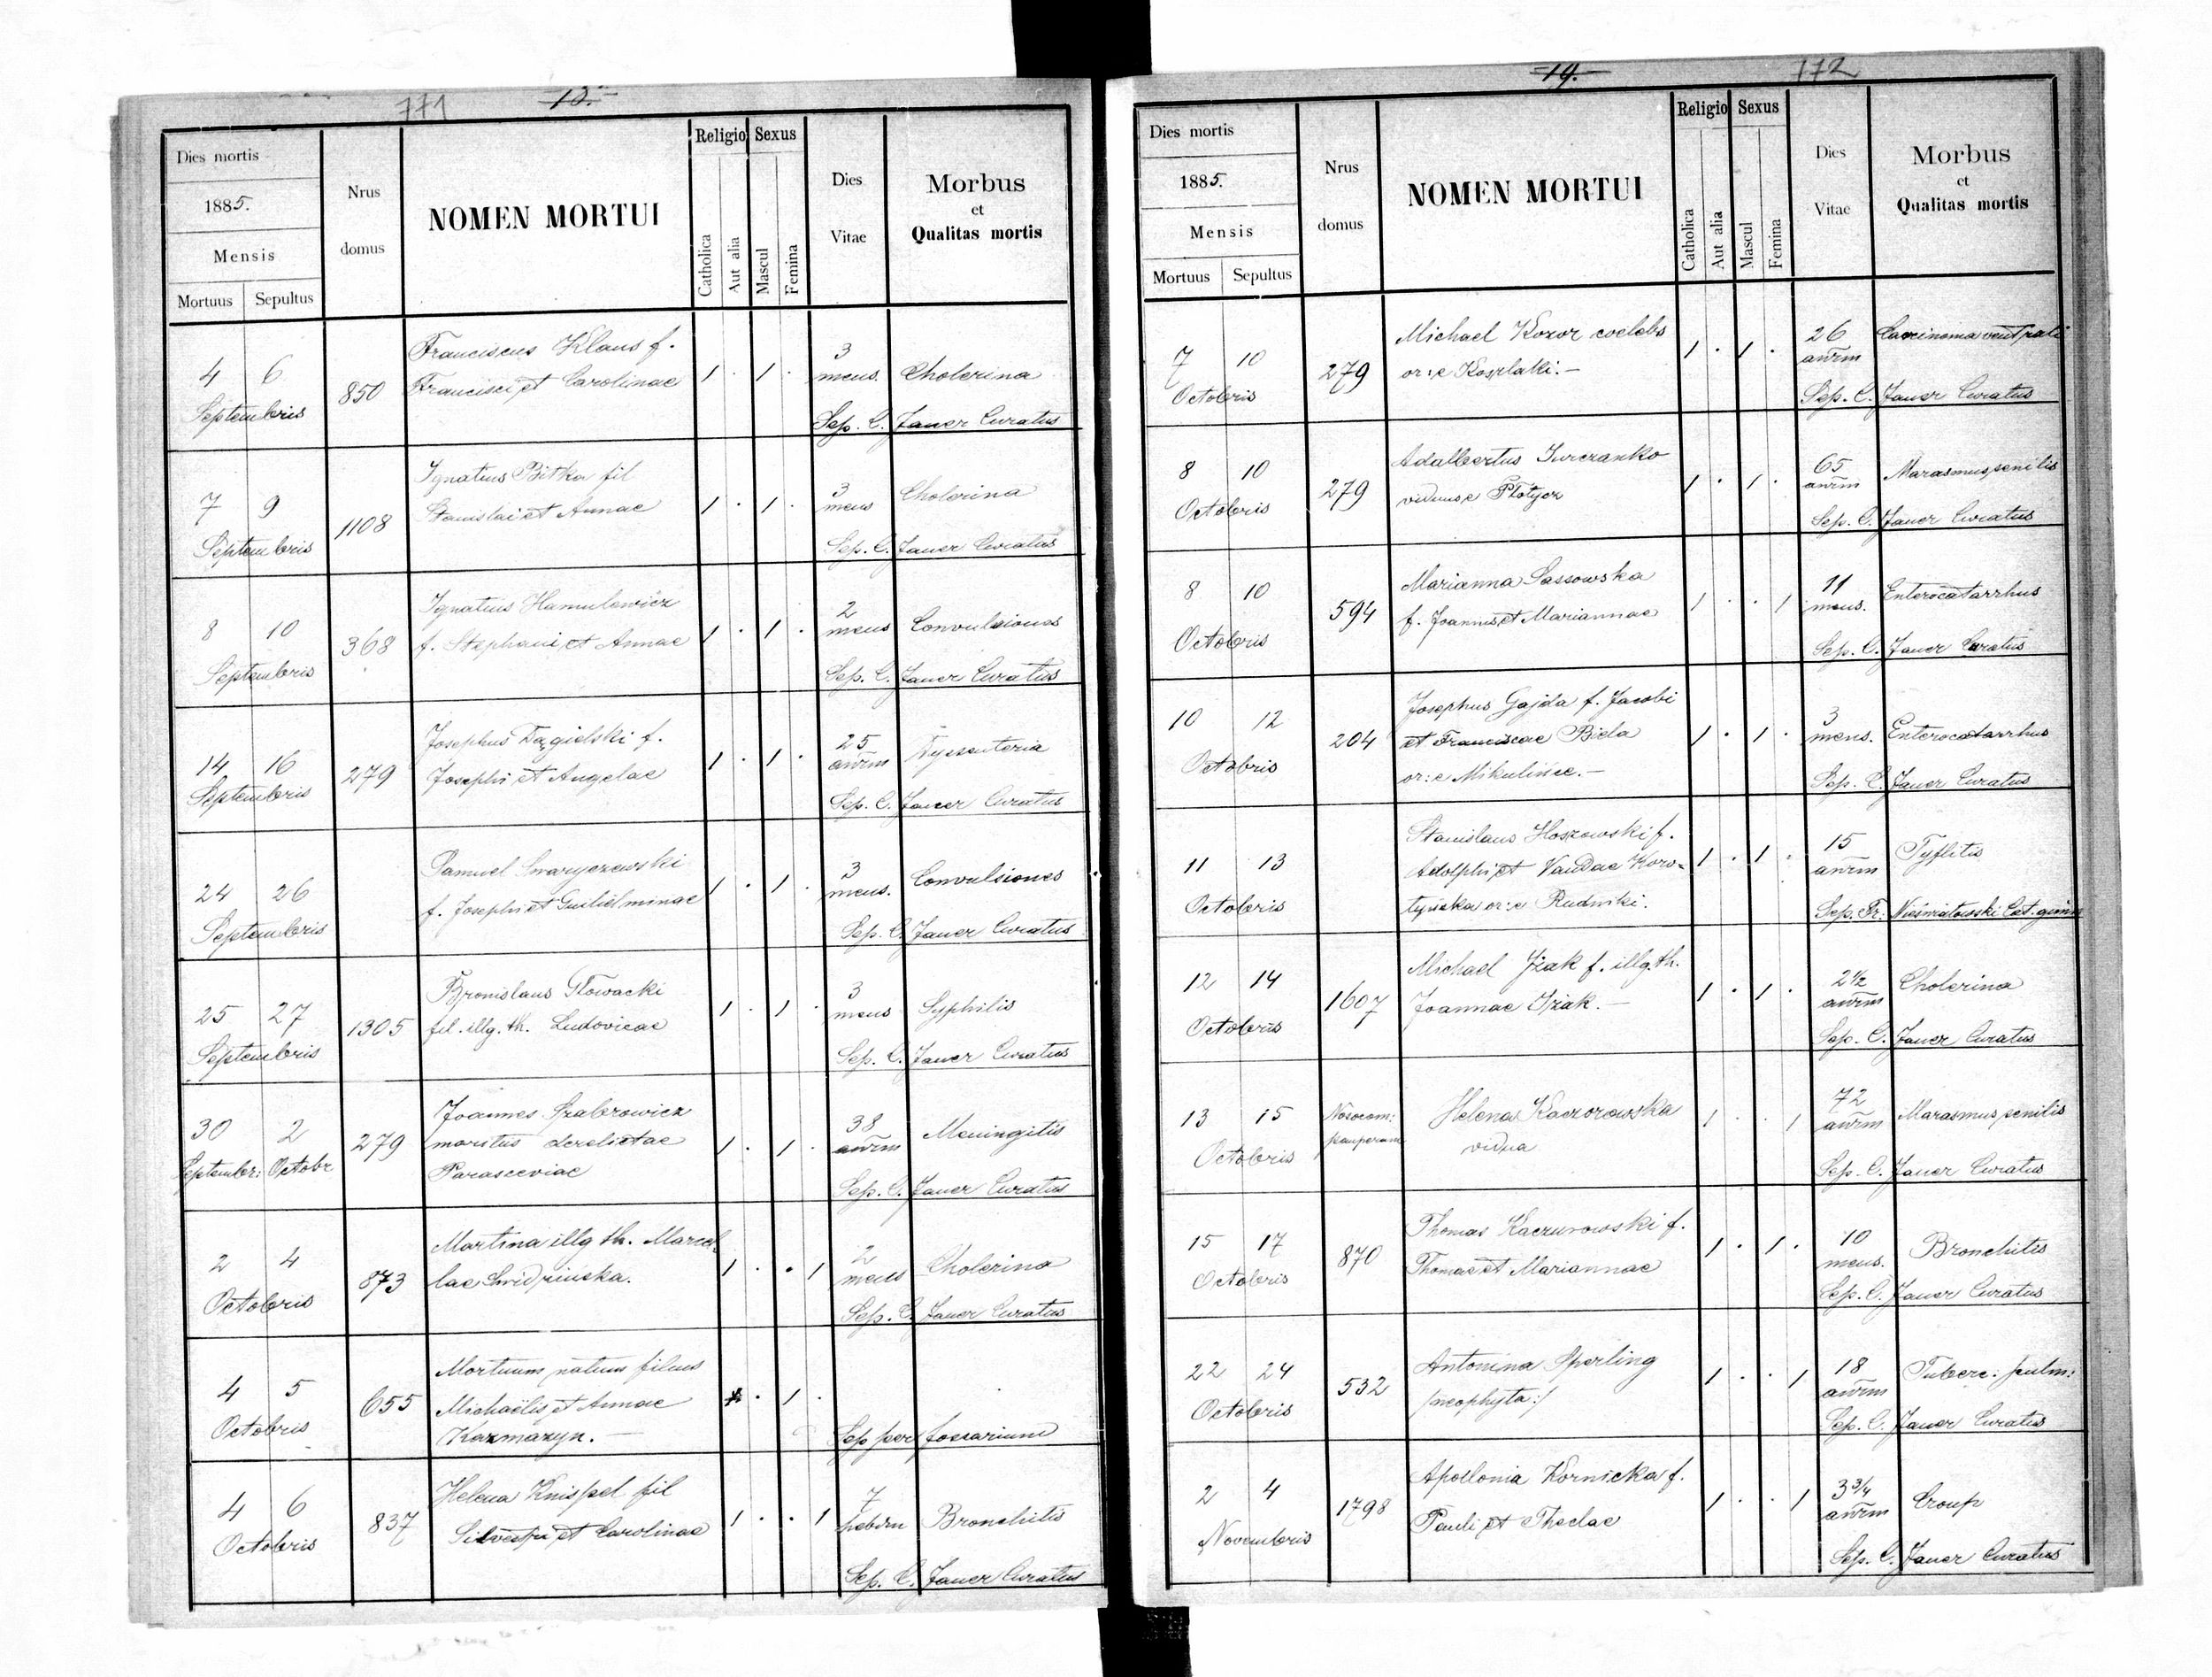 171
13.
Dies mortis
1885.
Mensis
Mortuus Sepultus
Nrus domus
NOMEN MORTUI
Religio Sexus
Catholica Aut alia Mascul Femina
Dies Vitae
Morbus
et
Qualitas mortis
Franciscus Klaus f.
4 6 850 Francisci et Carolinae 1 . 1 . 3 mens. Cholerina
Septembris
Sep. C. Jauer Curatus
Ignatius Bitka fil
7 9 1108 Stanislai et Annae 1 . 1 . 3 mens Cholerina
Septembris
Sep. C. Jauer Curatus
Ignatius Hamulewicz
8 10 368 f. Stephani et Annae 1 . 1 . 2 mens Convulsiones
Septembris
Sep. C. Jauer Curatus
Josephus Dągielski f.
14 16 279 Josephi et Angelae 1 . 1 . 25 anrm Dyssenteria
Septembris
Sep. C. Jauer Curatus
Samuel Swaryczewski
24 26 f. Josephi et Guilielminae 1 . 1 . 3 mens. Convulsiones
Septembris
Sep. C. Jauer Curatus
Bronislaus Słowacki
25 27 1305 fil. illg. th. Ludovicae 1 . 1 . 3 mens Syphilis
Septembris
Sep. C. Jauer Curatus
Joannes Szabrowicz
30 2 279 maritus derelictae 1 . 1 . 38 anrm Meningitis
Septembr: Octobr Parasceviae
Sep. C. Jauer Curatus
Martina illg th. Marcel
2 4 873 lae 1 . . 1 2 mens Cholerina
Octobris
Sep. C. Jauer Curatus
Mortuum natum filius
4 5 655 Michaëlis et Annae . 1 .
Octobris Kazmaryn.
Sep per fossarium
Helena Knispel fil
4 6 837 Silvestri et Carolinae 1 . . 1 7 hebdm Bronchitis
Octobris
Sep. C. Jauer Curatus
19.
172
Dies mortis
1885.
Mensis
Mortuus Sepultus
Nrus domus
NOMEN MORTUI
Religio Sexus
Catholica Aut alia Mascul Femina
Dies Vitae
Morbus
et
Qualitas mortis
Michael Kozor coelebs
7 10 279 or: e Kosplaki.— 1 . 1 . 26 anrm Carcinoma ventrali
Octobris
Sep. C. Jauer Curatus
Adalbertus Jurczanko
8 10 279 viduus e Płotycz 1 . 1 . 65 anrm Marasmus senilis
Octobris
Sep. C. Jauer Curatus
Marianna Sassowska
8 10 594 f. Joannis et Mariannae 1 . . 1 11 mens. Enterocatarrhus
Octobris
Sep. C. Jauer Curatus
Josephus Gajda f. Jacobi
10 12 204 et Franciscae Biela 1 . 1 . 3 mens. Enterocatarrhus
Octobris or: e Mikulińce.—
Sep. C. Jauer Curatus
Stanislaus Hoszowski f.
11 13 Adolphi et Vandae Koro= 1 . 1 . 15 anrm Tyflitis
Octobris tyńska or: e Rudniki.
Sep. Fr: Nieśmiałowski Cat. gimn
Michael Jżak f. illg. th.
12 14 1607 Joannae Iżak.— 1 . 1 . 2 1/2 anrm Cholerina
Octobris
Sep. C. Jauer Curatus
13 15 Nosocom: pauperum Helena Kaczorowska 1 . . 1 72 anrm Marasmus senilis
Octobris vidua
Sep. C. Jauer Curatus
Thomas Kaczurowski f.
15 17 870 Thomae et Mariannae 1 . 1 . 10 mens. Bronchitis
Octobris
Sep. C. Jauer Curatus
22 24 532 Antonina Sperling 1 . . 1 18 anrm Tuberc: pulm:
Octobris /neophyta:/
Sep. C. Jauer Curatus
Apollonia Kornicka f.
2 4 1798 Pauli et Theclae 1 . . 1 3 3/4 anrm Croup
Novembris
Sep. C. Jauer Curatus